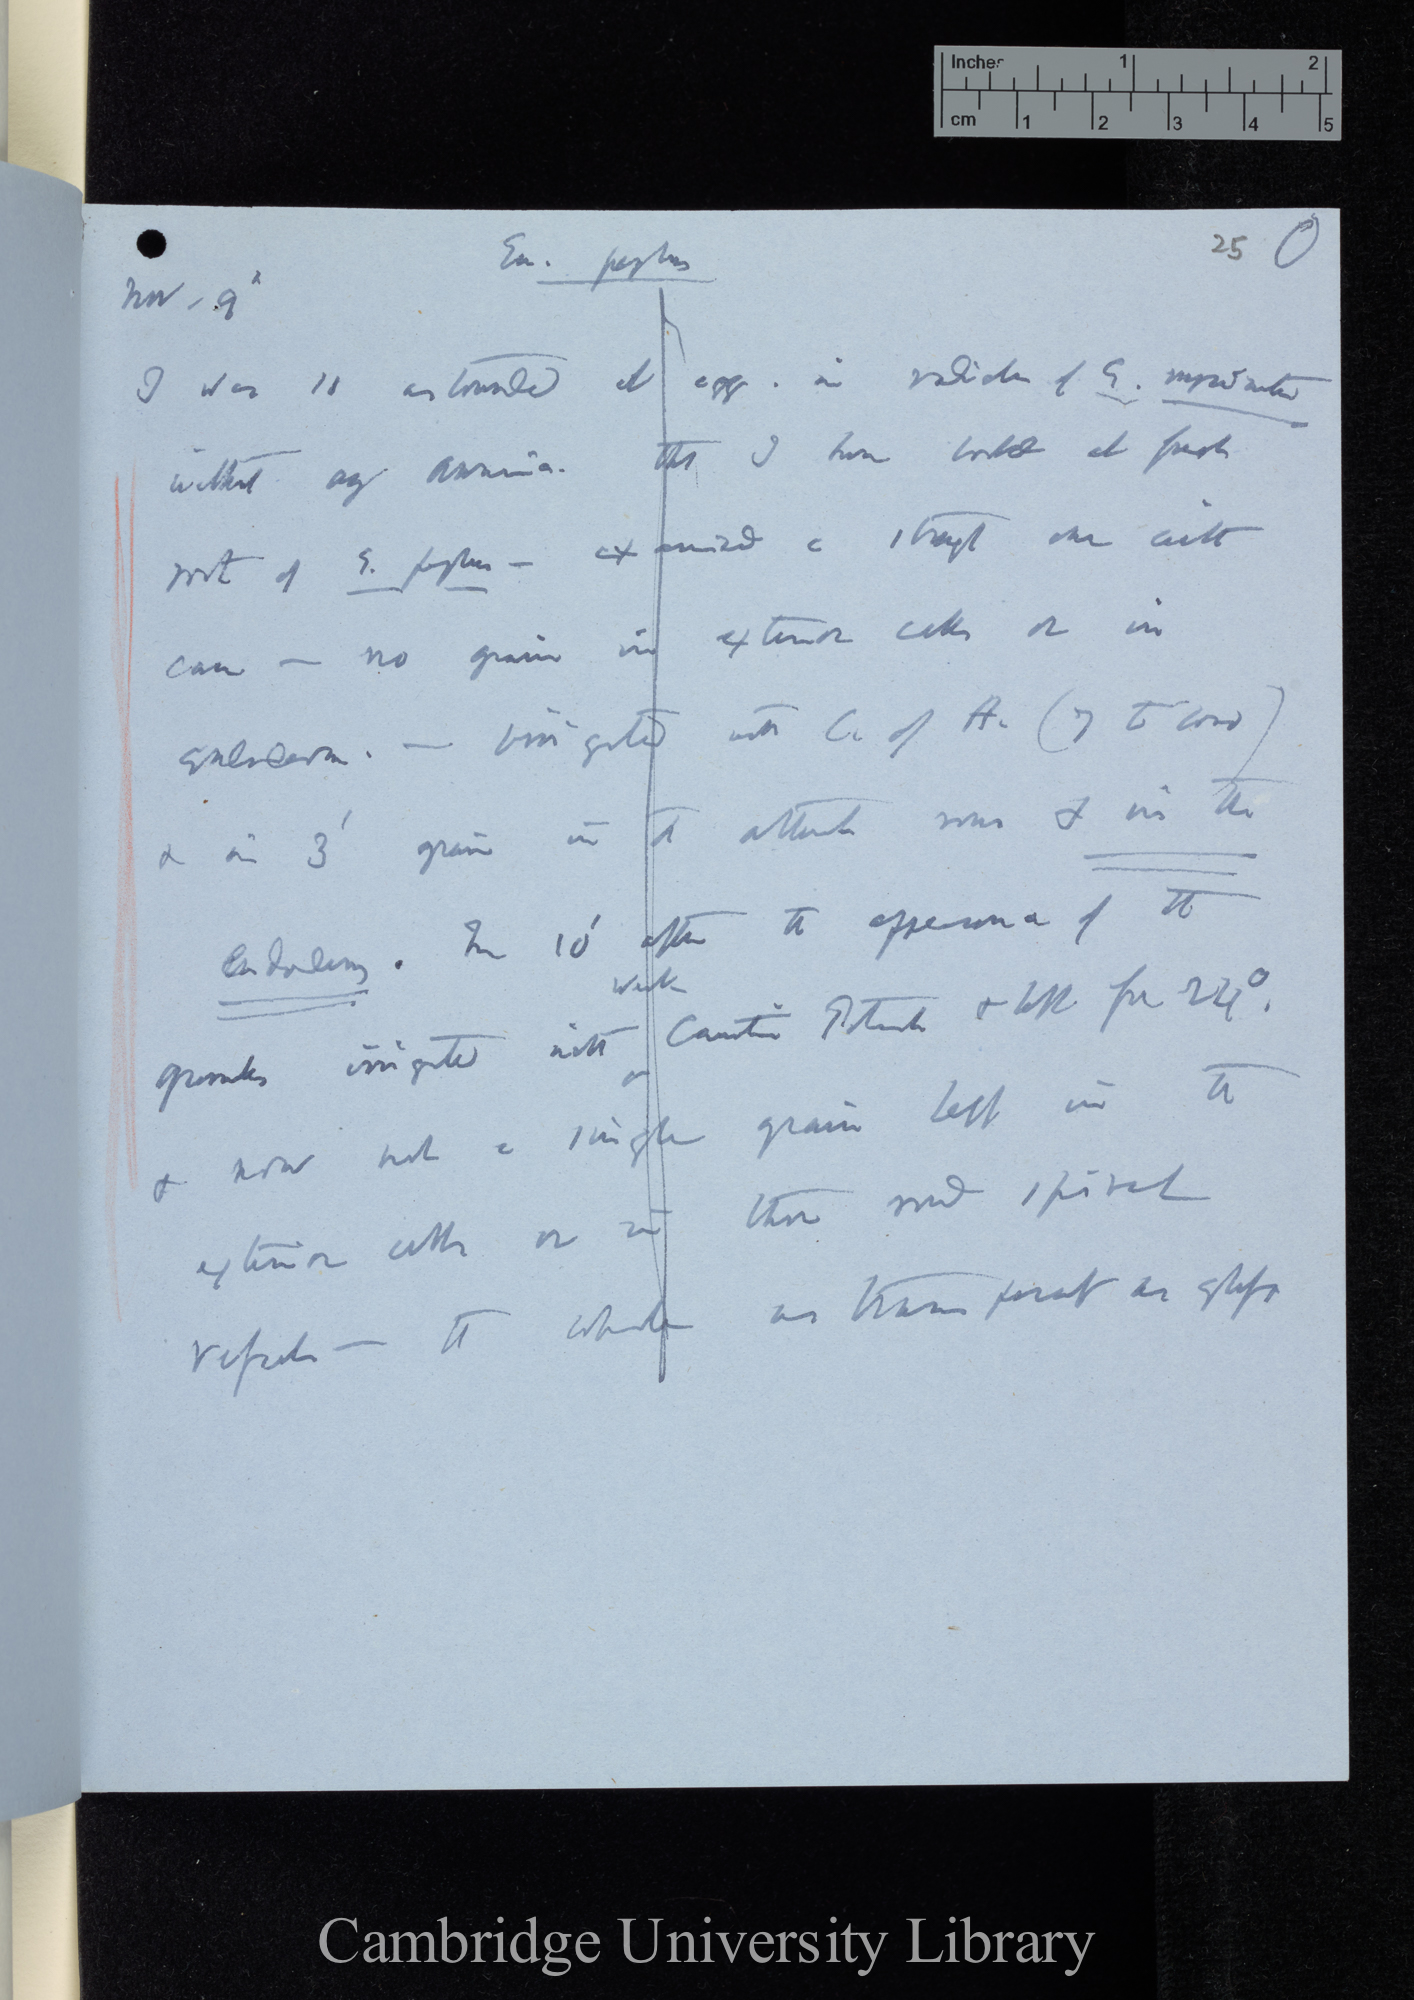 Inches 1 2
cm 1 2 3 4 5
25
Eu. peplus
Nov. 9th
I was so astounded at agg. in radicles of E. myrsinites
without any ammonia. that I have looked at fresh
root of E. peplus — examined a straight one with
care — no grains in exterior cells or in
endoderm. — irrigated with C. of A. (7 to 1000)
& in 3' grains in the alternate rows & in the
Endoderm. In 10' after the appearance of the
granules irrigated with weak Caustic Potash & left for 24°.
& now not a single grain left in the
exterior cells or in those round spiral
vessels — the whole as transparent as glass
Cambridge University Library